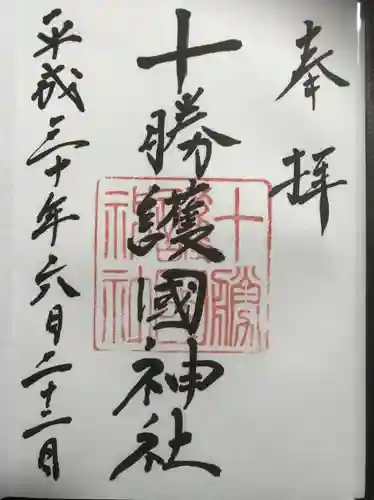 奉拝
十勝護國神社
平成三十年六月二十二日
十勝
護國
神社